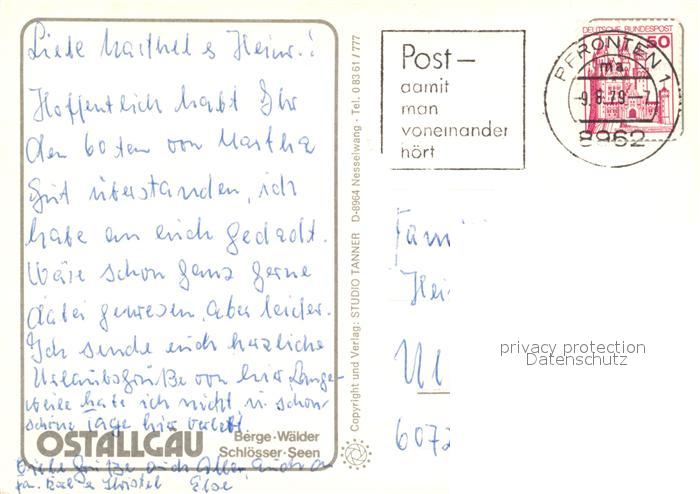 Liebe Marthel & Heinr.!
Hoffentlich habt Ihr
den 60ten von Martha
gut überstanden, ich
habe an euch gedacht.
Wäre schon ganz gerne
dabei gewesen, aber leider.
Ich sende euch herzliche
Urlaubsgrüße von hier Lange-
weile habe ich nicht u. schon
schöne Tage hier verlebt.
OSTALLGÄU
Berge · Wälder
Schlösser · Seen
Viele Grüße auch Allen
Fa. Karl & Christel Else
Copyright und Verlag: STUDIO TANNER D-8964 Nesselwang · Tel. 0 83 61 / 777
Post–
damit
man
voneinander
hört
DEUTSCHE BUNDESPOST
50
PFRONTEN 1
ma
-9.8.79.-7
8962
Fami
Hei
Ul
6072
privacy protection
Datenschutz